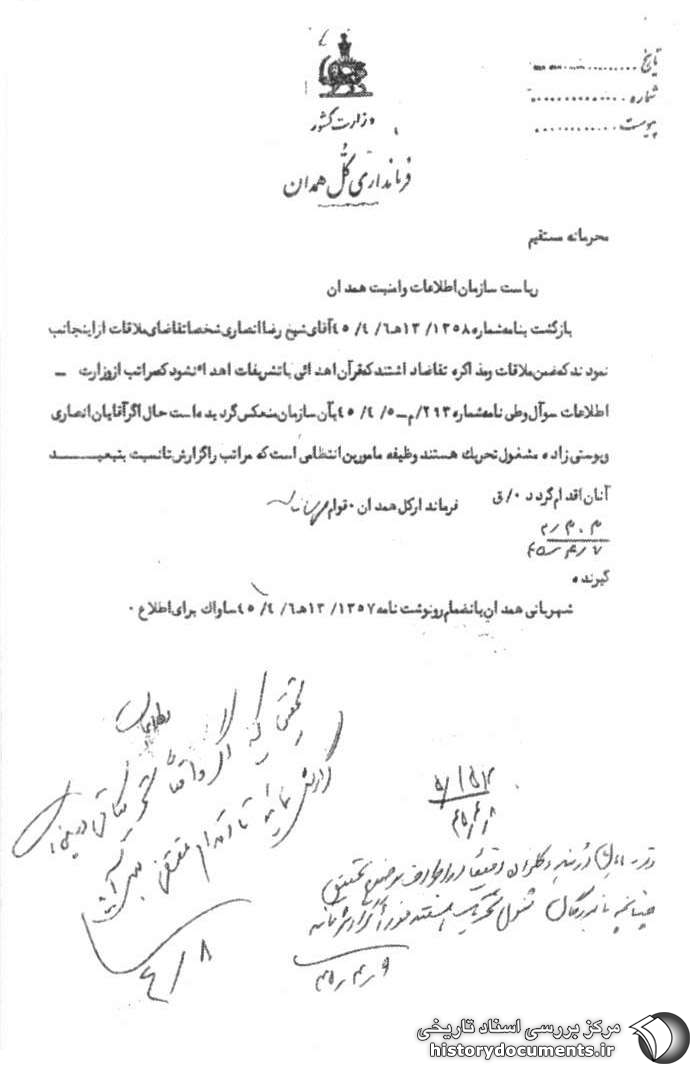 تاریخ ............
شماره ............
پیوست ............
وزارت کشور
فرمانداری کل همدان
محرمانه مستقیم
ریاست سازمان اطلاعات وامنیت همدان
بازگشت بنامه شماره ۱۳۵۸/ ۱۳هـ ۶/ ۴/ ۴۵ آقای شیخ رضا انصاری شخصا تقاضای ملاقات از اینجانب
نمودند که ضمن ملاقات ومذاکره تقاضا داشتند که قرآن اهدائی با تشریفات اهداء نشود که مراتب از وزارت ــ
اطلاعات سوآل وطی نامه شماره ۲۹۳/م ــ ۵/ ۴/ ۴۵ بآن سازمان منعکس گردیده است حال اگر آقایان انصاری
وپوستی زاده مشغول تحریک هستند وظیفه مامورین انتظامی است که مراتب را گزارش تا نسبت بتبعیـــــد
آنان اقدام گردد ۰/ق
فرماندار کل همدان ۰ قوام
۷ ر۴ ر۴۵
گیرنده
شهربانی همدان بانضمام رونوشت نامه ۱۳۵۷/ ۱۳هـ ۶/ ۴/ ۴۵ ساواک برای اطلاع ۰
تحقیق کنید اگر واقعاً
گزارش نمائید تا اقدام مقتضی بعمل آید
۸/۴
۵/۱۵۲
۴۵/۴/۸
موضوع تحقیق
چنانچه نامبردگان مشغول تحریک هستند فوراً گزارش نمائید
۹ ر۴ ر۴۵
مرکز بررسی اسناد تاریخی
historydocuments.ir